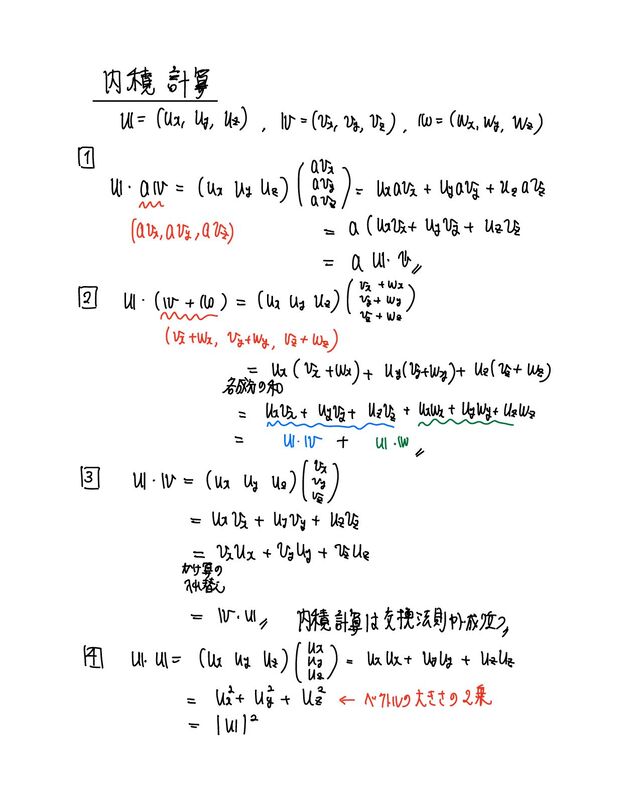 内積計算
𝕦 = (uₓ, u_y, u_z) , 𝕧 = (vₓ, v_y, v_z) , 𝕨 = (wₓ, w_y, w_z)
1
𝕦・a𝕧 = (uₓ u_y u_z) (avₓ av_y av_z) = uₓavₓ + u_yav_y + u_zav_z
(avₓ, av_y, av_z) = a (uₓvₓ + u_yv_y + u_zv_z
= a 𝕦・𝕧 〃
2 𝕦・(𝕧 + 𝕨) = (uₓ u_y u_z) (vₓ + wₓ v_y + w_y v_z + w_z)
(vₓ+wₓ, v_y+w_y, v_z+w_z)
= uₓ(vₓ + wₓ) + u_y(v_y+w_y) + u_z(v_z + w_z)
各成分の和
= uₓvₓ + u_yv_y + u_zv_z + uₓwₓ + u_yw_y + u_zw_z
= 𝕦・𝕧 + 𝕦・𝕨 〃
3 𝕦・𝕧 = (uₓ u_y u_z) (vₓ v_y v_z)
= uₓvₓ + u_yv_y + u_zv_z
= vₓuₓ + v_yu_y + v_zu_z
かけ算の
入れ替え
= 𝕧・𝕦 〃 内積計算は交換法則が成立つ〃
4 𝕦・𝕦 = (uₓ u_y u_z) (uₓ u_y u_z) = uₓuₓ + u_yu_y + u_zu_z
= uₓ² + u_y² + u_z² ← ベクトルの大きさの2乗
= |𝕦|²